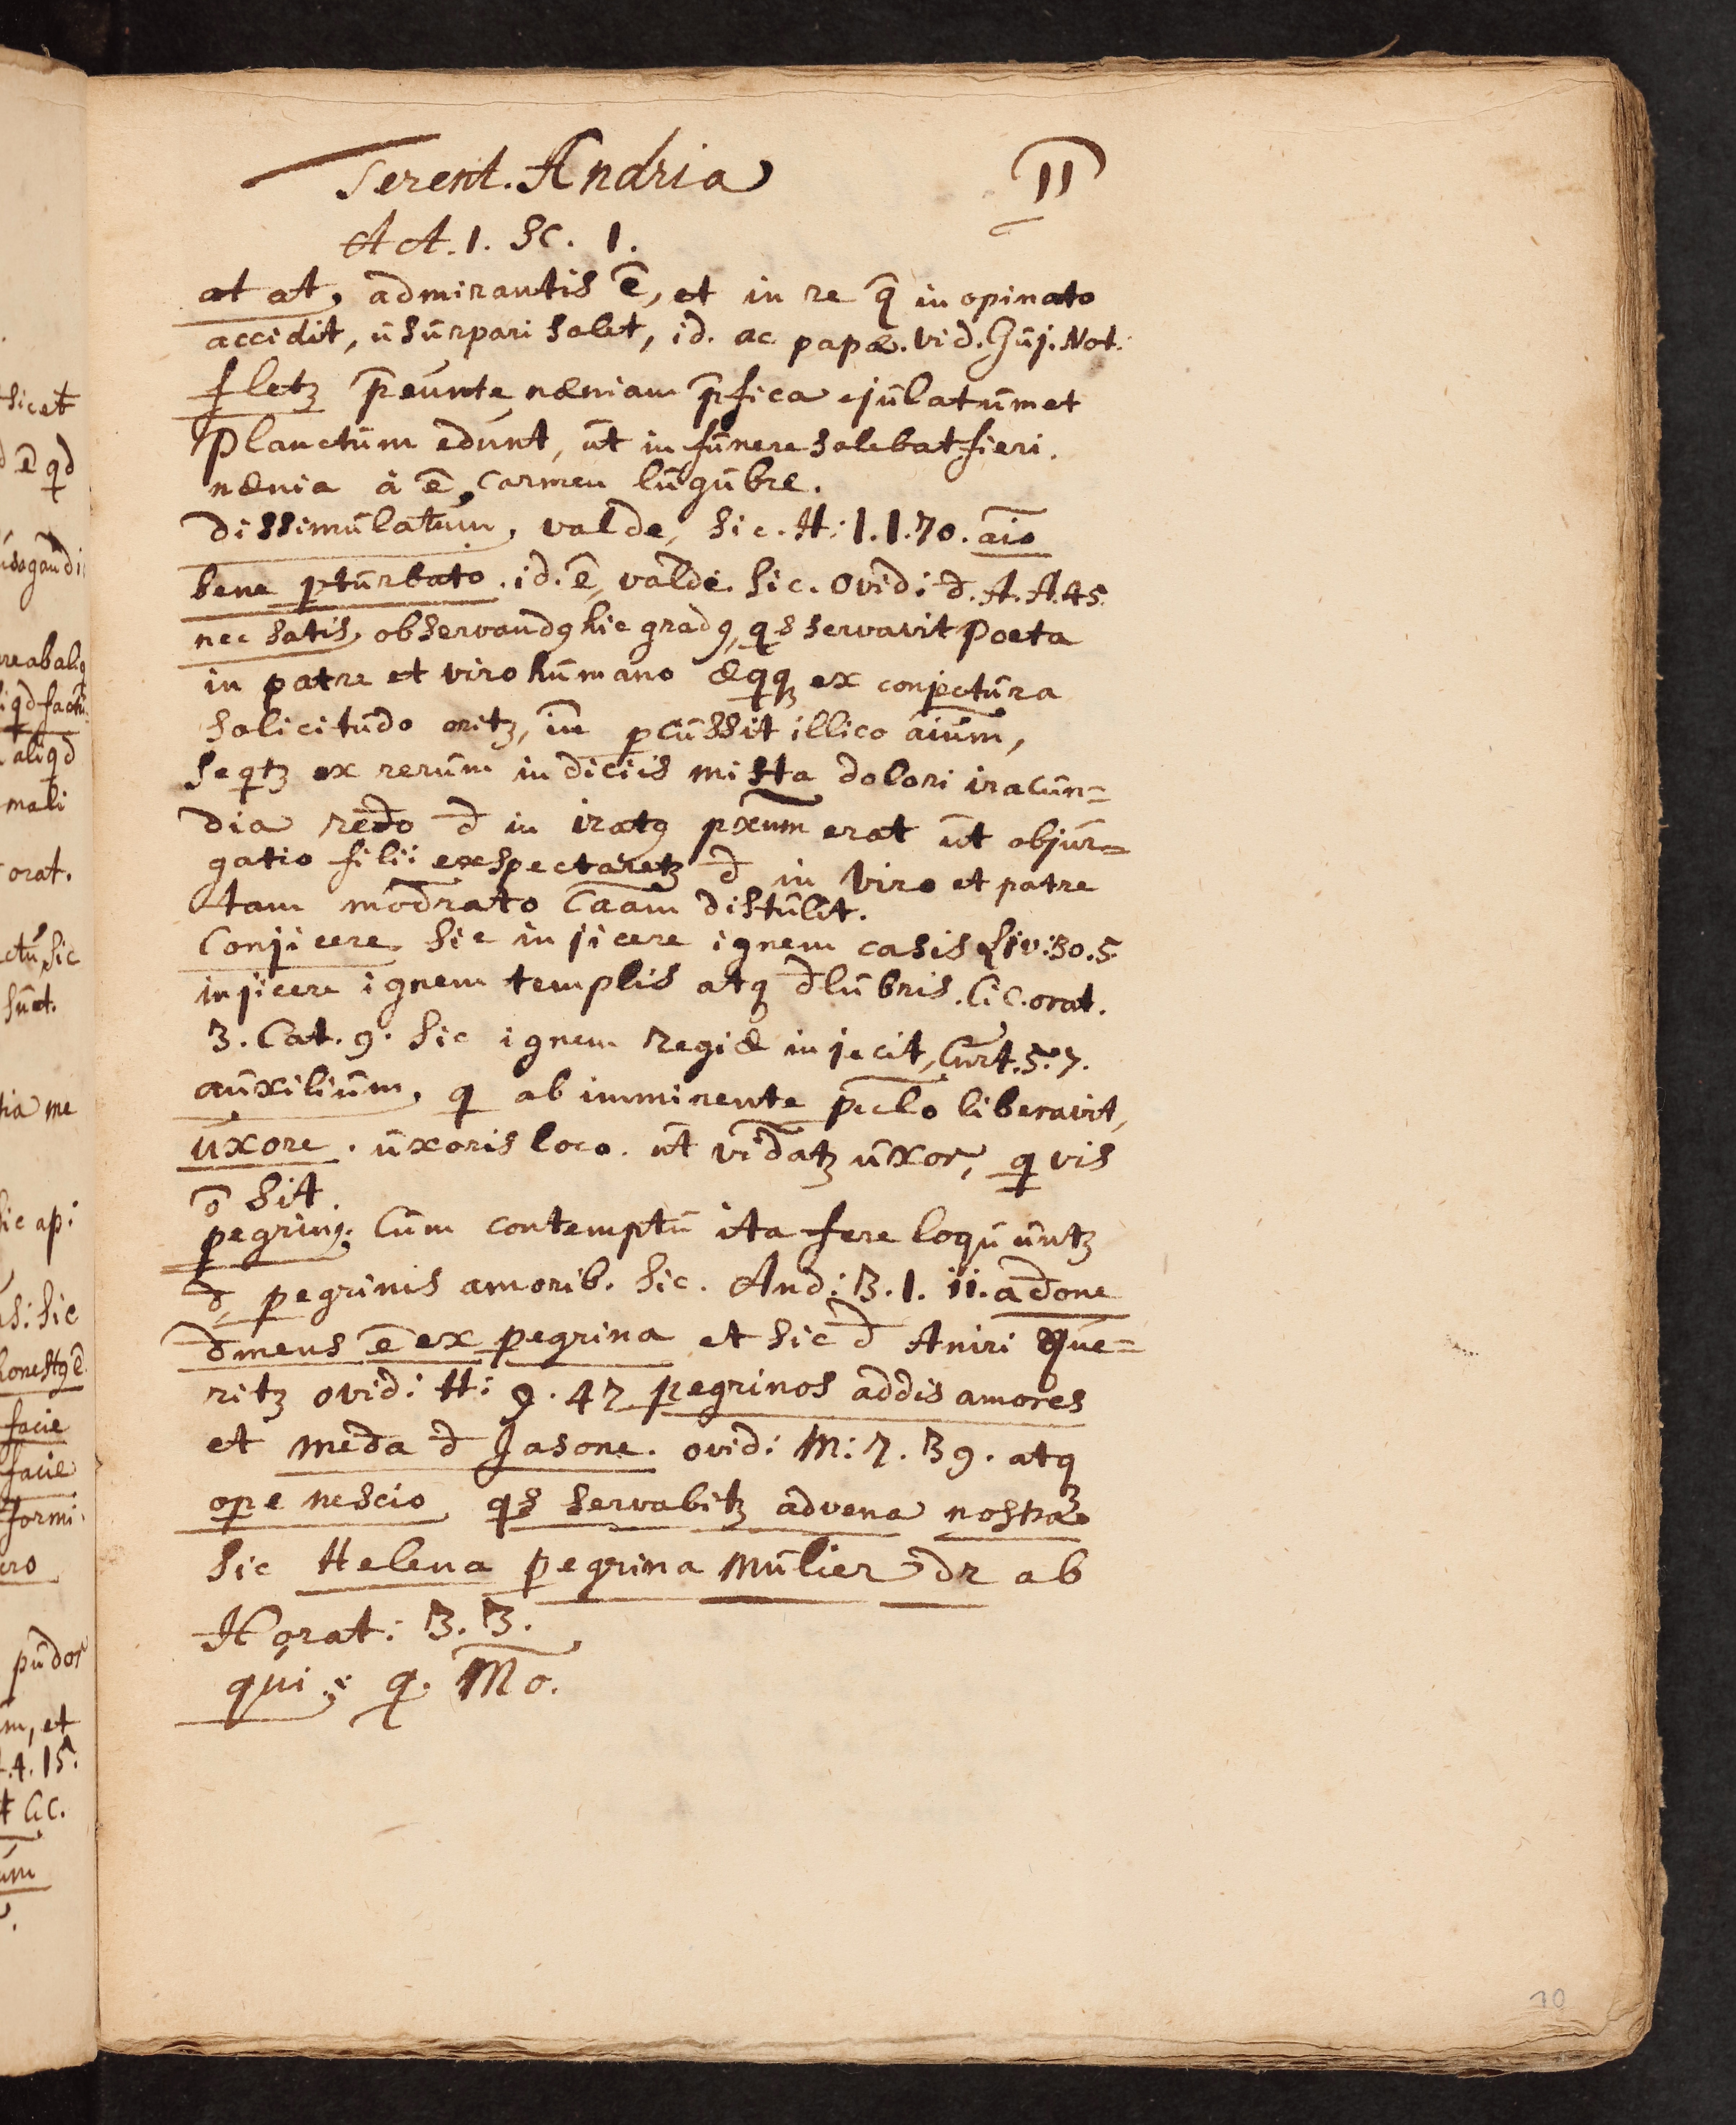 Terent. Andria
11
Act. 1. Sc. 1.
at at, admirantis ē, et in re q̄ in opinato
accidit, ūsūrpari solet, id. ac papæ. Vid. Gūj. Not.
fletꝫ p̄eūnte næniam p̄fica ejūlatūm et
planctūm edūnt, ūt in fūnere solebat fieri.
nænia à ē, carmen lūgūbre.
dissimūlatūm, valde, sic. H: 1.1.70. aīo
bene ꝑtūrbato. id. ē, valde. sic. Ovid: d̄. A. A. 45.
nec satis, observandꝯ hic gradꝯ, qs servavit poeta
in patre et viro hūmano æqꝫ ex conjectūra
solicitūdo oritꝫ, in̄ ꝑcūssit illico aīūm,
seqtꝫ ex rerūm indiciis mista dolori iracūn=
dia redo d̄ in iratꝯ px̄um erat ūt objūr=
gatio filii exspectaretꝫ d̄ in viro et patre
tam mod̄rato Caām distūlit.
Conjicere. sic injicere ignem casis Liv: 30.5.
injicere ignem templis atqꝫ d̄lūbris. Cic. orat.
3. Cat. 9. Sic ignem regiæ injecit, Cūrt. 5. 7.
aūxiliūm, q ab imminente ꝑiclo liberavit,
ūxore. ūxoris loco. ūt vid̄atꝫ ūxor, q vis
ō sit.
ꝑegrinꝯ. Cūm contemptū ita fere loqūūntꝫ
d̄ ꝑegrinis amorib. Sic. And: 3. 1. 11. ad̄one
d̄mens ē ex ꝑegrina et sic d̄ Aniri Qūe=
ritꝫ ovid: H: 9. 47 ꝑegrinos addis amores
et med̄a d̄ Jasone. ovid: M: 7. 39. atqꝫ
ope nescio qs servabitꝫ advena nostra
Sic Helena ꝑegrina mūlier dr ab
Horat: 3. 3.
qui; q. Mō.
10